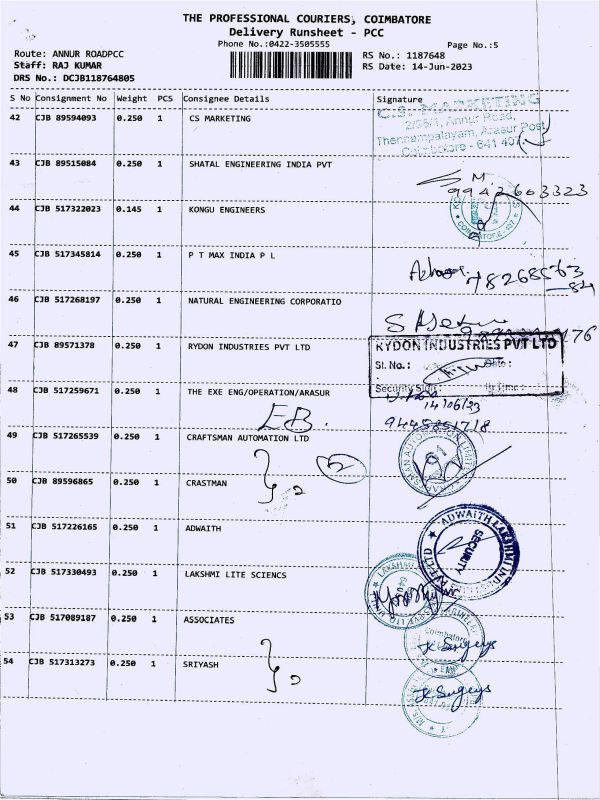 THE PROFESSIONAL COURIERS, COIMBATORE
Delivery Runsheet - PCC
Phone No.:0422-3505555
Page No.:5
Route: ANNUR ROADPCC
RS No.: 1187648
Staff: RAJ KUMAR
RS Date: 14-Jun-2023
DRS No.: DCJB118764805
S No Consignment No Weight PCS Consignee Details Signature
C.S. MARKETING
42 CJB 89594093 0.250 1 CS MARKETING
Annur Road,
Thennampalayam, Arasur Post
Coimbatore - 641 407.
43 CJB 89515084 0.250 1 SHATAL ENGINEERING INDIA PVT
M
9942603323
44 CJB 517322023 0.145 1 KONGU ENGINEERS
COIMBATORE - 407
45 CJB 517345814 0.250 1 P T MAX INDIA P L
46 CJB 517268197 0.250 1 NATURAL ENGINEERING CORPORATIO
47 CJB 89571378 0.250 1 RYDON INDUSTRIES PVT LTD
RYDON INDUSTRIES PVT LTD
Sl. No.: Date:
Security Sign: In Time:
48 CJB 517259671 0.250 1 THE EXE ENG/OPERATION/ARASUR
14/06/23
EB.
49 CJB 517265539 0.250 1 CRAFTSMAN AUTOMATION LTD
2
50 CJB 89596865 0.250 1 CRASTMAN
51 CJB 517226165 0.250 1 ADWAITH
ADWAITH LAKSHMI
SECURITY
52 CJB 517330493 0.250 1 LAKSHMI LITE SCIENCS
53 CJB 517089187 0.250 1 ASSOCIATES
Coimbatore
54 CJB 517313273 0.250 1 SRIYASH